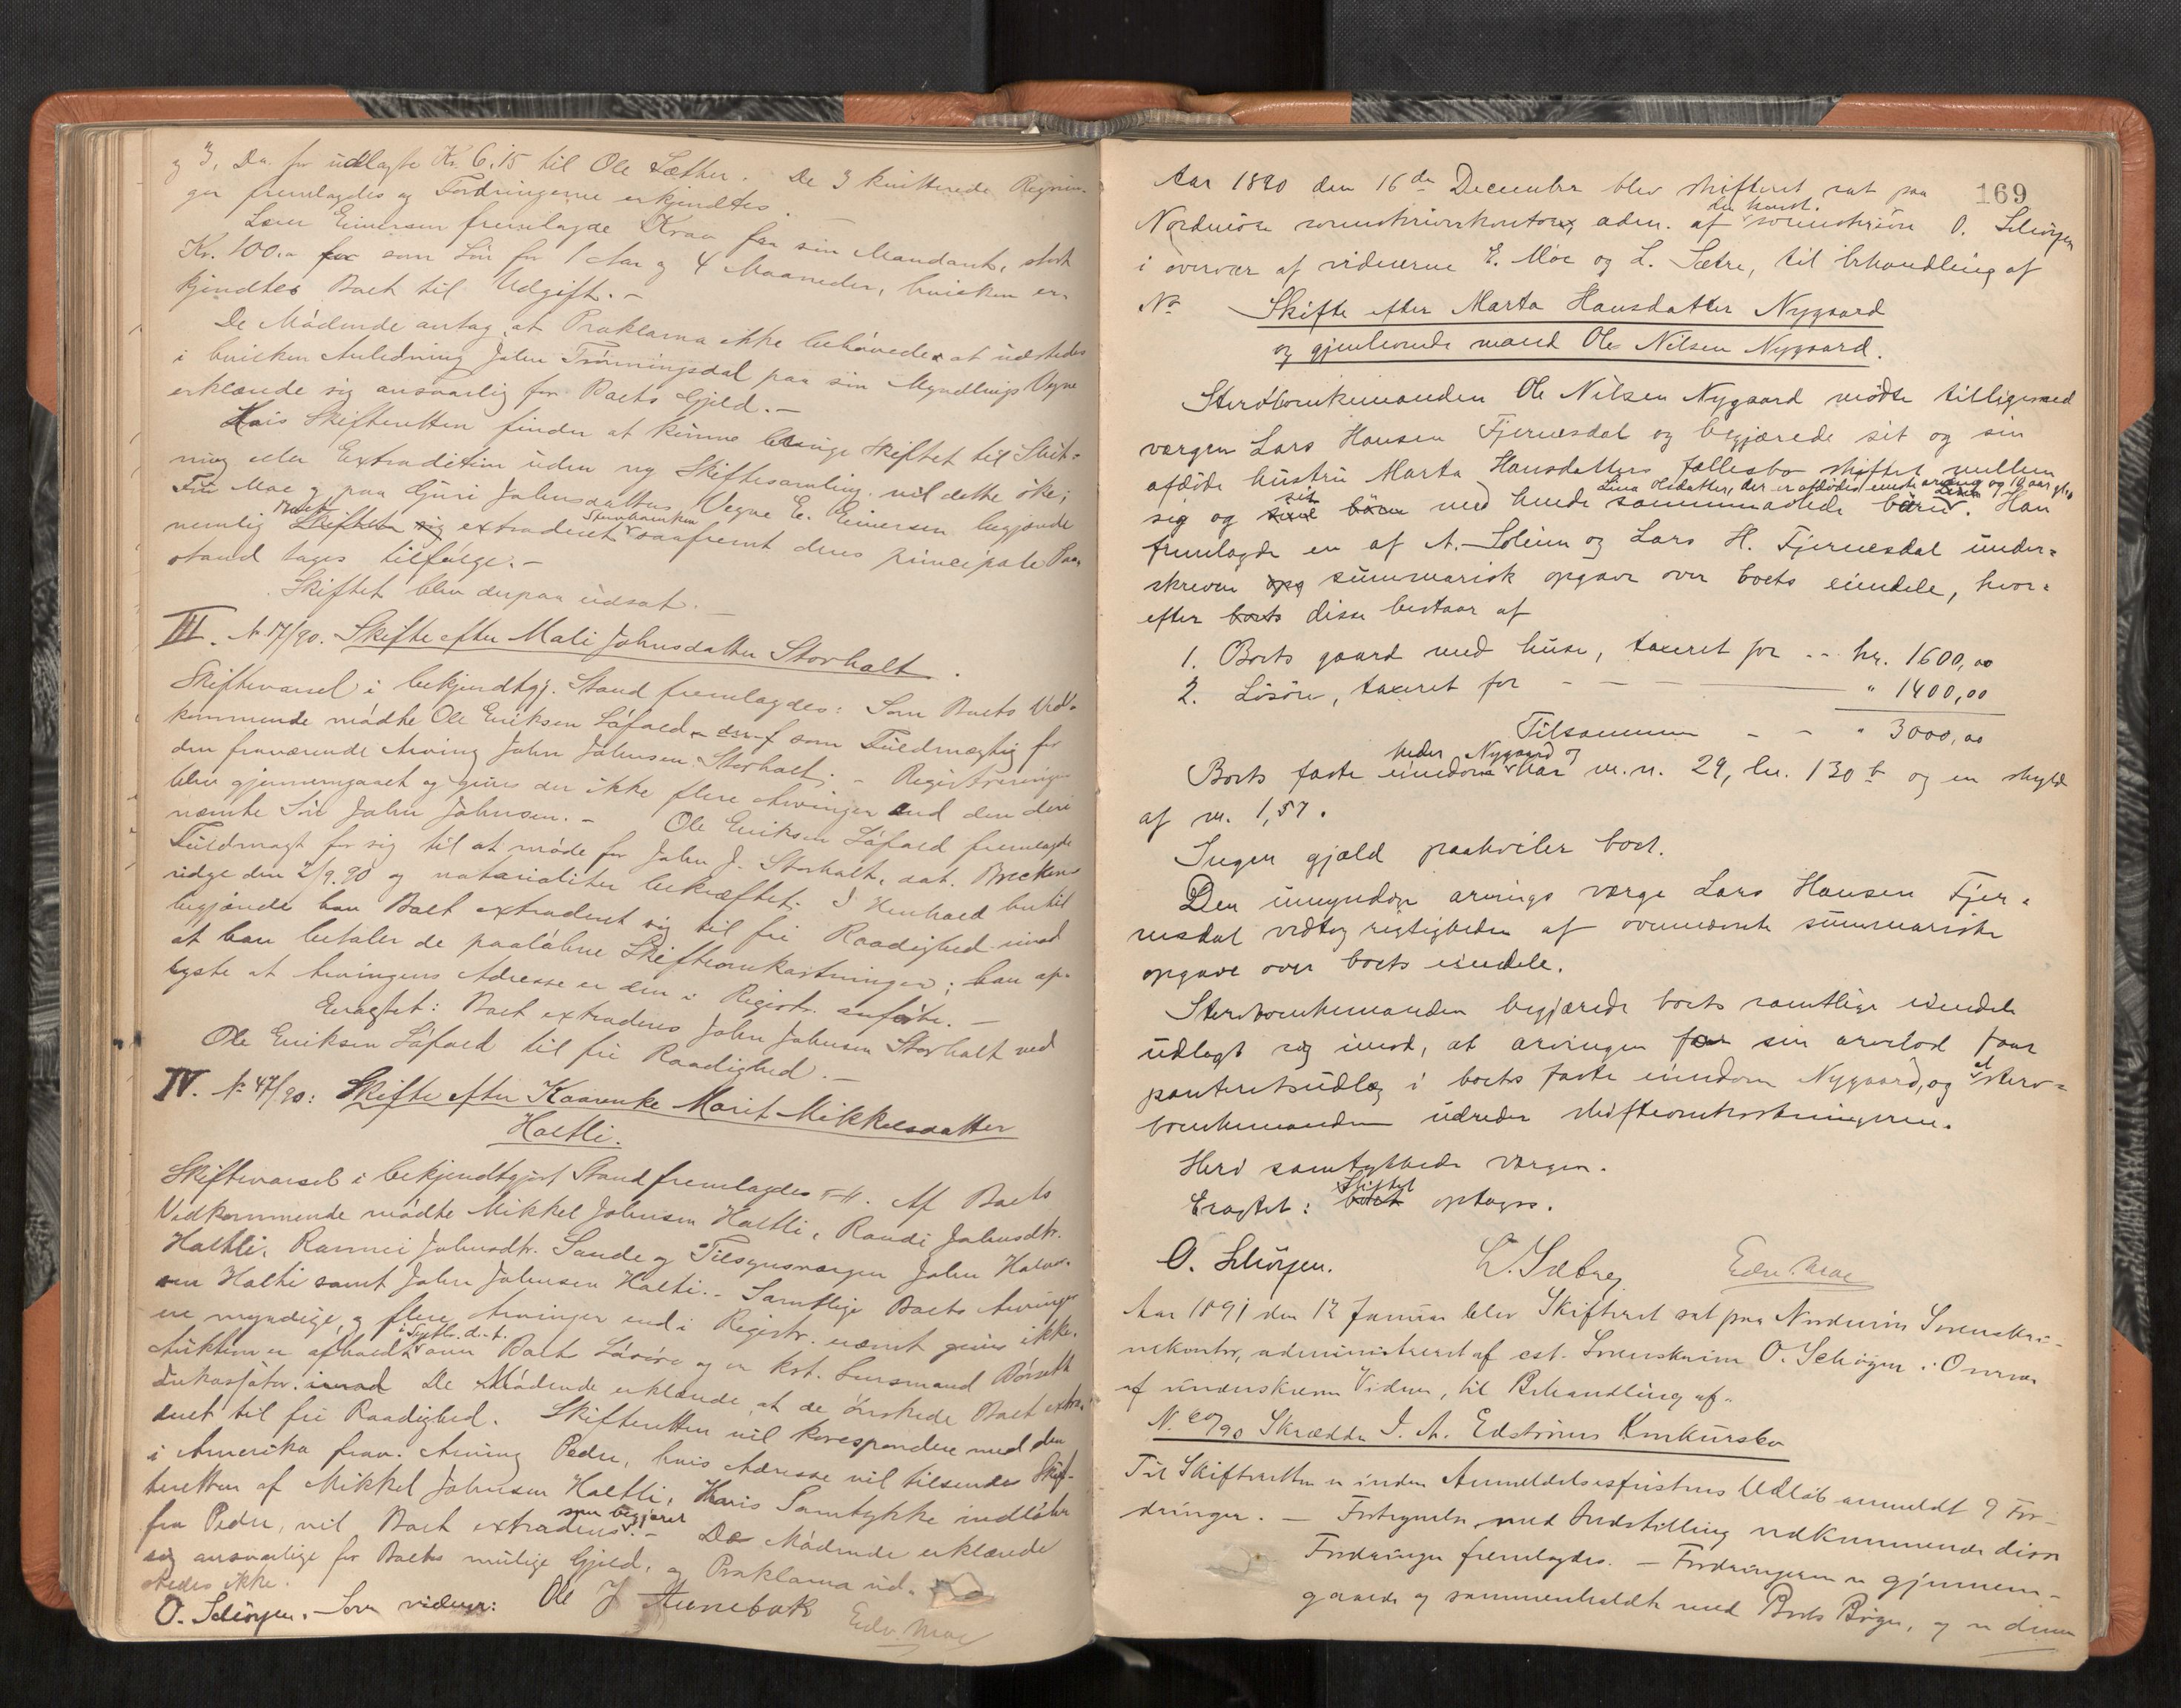 og 3, Do. for udlagte Kr. 6.15 til Ole Sæther. De 3 kvitterede Regnin-
ger fremlagdes og Fordringerne erkjendtes.
Einersen fremlagde Krav fra sin Mandant, stort
Kr. 100.- for som Løn for 1 Aar og 4 Maaneder, hvilken er-
kjendtes Boet til Udgift. -
De Mødende antog, at Proklama ikke behøvedes at udstedes
i hvilken Anledning John Trønningsdal paa sin Myndlings Vegne
erklærede sig ansvarlig for Boets Gjeld. -
Hvis Skifteretten finder at kunne bringe Skiftet til Slut-
ning eller Extradition uden ny Skiftesamling, vil dette ske;
Moe og paa Guri Johnsdatters Vegne E. Einersen begjærede
nemlig Boet Skiftet sig extraderet Stervboenken saafremt deres principale Paa-
stand tages tilfølge. -
Skiftet blev derpaa udsat. -
III. No 17/90. Skifte efter Mali Johnsdatter Storholt.
Skiftevarsel i bekjendtgj. Stand fremlagdes: Som Boets Ved-
kommende mødte Ole Eriksen Løfald som Fuldmægtig for
den fraværende Arving John Johnsen Storholt. - Registreringen
blev gjennemgaaet og gives der ikke flere Arvinger end den deri
nævnte Søn John Johnsen. - Ole Eriksen Løfald fremlagde
Fuldmagt for sig til at møde for John J. Storholt, dat. Brecken-
ridge den 2/9.90 og notarialiter bekræftet. I Henhold hertil
begjærede han Boet extraderet sig til fri Raadighed imod
at han betaler de paaløbne Skifteomkostninger; han op-
lyste at Arvingens Adresse er den i Registr. anførte. -
Eragtet: Boet extraderes John Johnsen Storholt ved
Ole Eriksen Løfald til fri Raadighed. -
IV. No 47/90: Skifte efter Kaarenke Marit Mikkelsdatter
Holtli.
Skiftevarsel i bekjendtgjort Stand fremlagdes. Af Boets
Vedkommende mødte Mikkel Johnsen Holtli, Randi Johnsdtr.
Holtli, Johnsdtr. Sande og Tilsynsværgen John Halvor-
sen Holtli samt John Johnsen Holtli. - Samtlige Boets Arvinger
ere myndige, og flere Arvinger end i Registr. nævnt gives ikke.
Auktion er afholdt i Septbr. d.A. over Boets Løsøre og er kst. Lensmand Børseth
Inkassator. imod De Mødende erklærede, at de ønskede Boet extra-
deret til fri Raadighed. Skifteretten vil korespondere med den
i Amerika frav. Arving Peder, hvis Adresse vil tilsendes Skif-
teretten af Mikkel Johnsen Holtli. Hvis Samtykke indløber
fra Peder, vil Boet extraderes som begjæret. - De Mødende erklærede
sig ansvarlige for Boets mulige Gjeld, og Proklama ud-
stedes ikke.
O. Schiørgen. - Som vidner: Ole J. Aunebak Edv. Moe
169
Aar 1890 den 16de December blev skifteret sat paa
Nordmøre sorenskriverkontor, adm. af den konst. sorenskriver O. Schiørgen
i overvær af vidnerne E. Moe og L. Sætre, til behandling af
No Skifte efter Marta Hansdatter Nygaard
og gjenlevende mand Ole Nilsen Nygaard.
Stervboenkemanden Ole Nilsen Nygaard mødte tilligemed
værgen Lars Hansen Fjernesdal og begjærede sit og sin
afdøde hustru Marta Hansdatters fællesbo skiftet mellem
sig og sit sine børn med hende sammenavlede barn Lina Olsdatter, der er afdødes eneste arving og 10 aar gl. Han
fremlagde en af A. Soleim og Lars H. Fjernesdal under-
skreven opg summarisk opgave over boets eiendele, hvor-
efter boets disse bestaar af
1. Boets gaard med huse, taxeret for -- kr. 1600,00
2. Løsøre, taxeret for - - - " 1400,00
Tilsammen - - " 3000,00
Boets faste eiendom heder Nygaard og har m.n. 29, br. 130 b og en skyld
af m. 1,57.
Ingen gjæld paahviler boet.
Den umyndige arvings værge Lars Hansen Fjer-
nesdal vedtog rigtigheden af ovennævnte summariske
opgave over boets eiendele.
Stervboenkemanden begjærede boets samtlige eiendele
udlagt sig imod, at arvingen for sin arvelod faar
panteretsudlæg i boets faste eiendom Nygaard, og at sterv-
boenkemanden udreder skifteomkostningerne.
Heri samtykkede værgen.
Eragtet: Skiftet boet optages.
O. Schiørgen. L. Sætre Edv. Moe
Aar 1891 den 12 Januar blev Skifteret sat paa Nordmøre Sorenskri-
verkontor, administreret af cst. Sorenskriver O. Schiørgen i Overvær
af underskrevne Vidner, til Behandling af.
N. 60/90 Skrædder J. A. Edstrøms Konkursbo
Til Skifteretten er inden Anmeldelsesfristens Udløb anmeldt 9 For-
dringer. - Fortegnelse med Indstilling vedkommende disse
Fordringer fremlagdes. - Fordringerne er gjennem-
gaaede og sammenholdt med Boets Bøger, og er denne